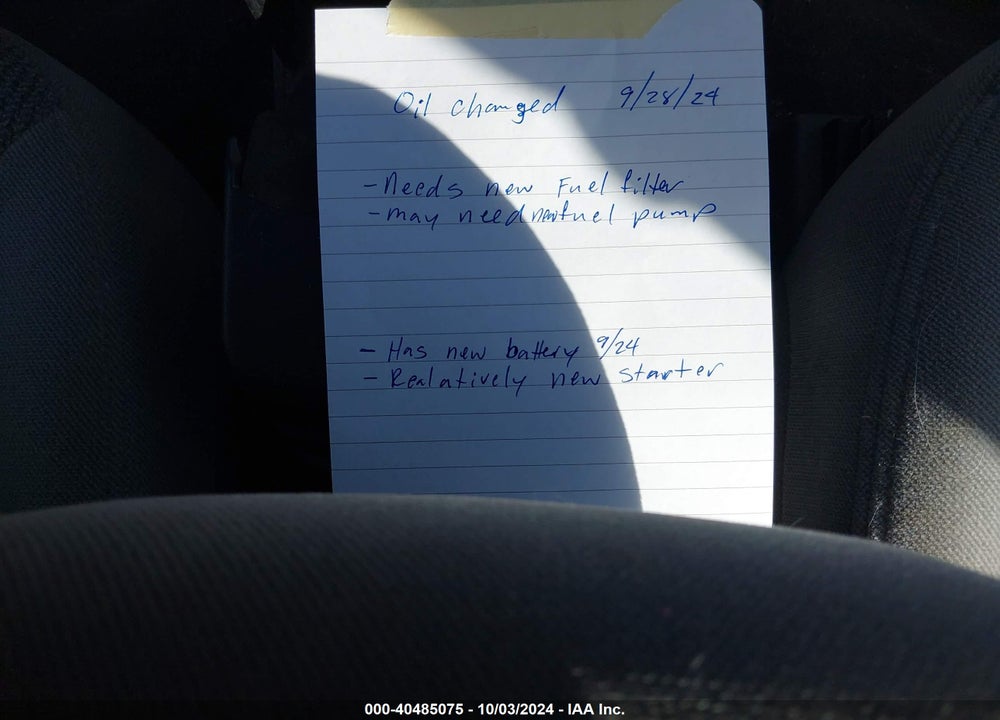 Oil changed 9/28/24
- Needs new Fuel filter
- may need new fuel pump
- Has new battery 9/24
- Realatively new starter
000-40485075 - 10/03/2024 - IAA Inc.